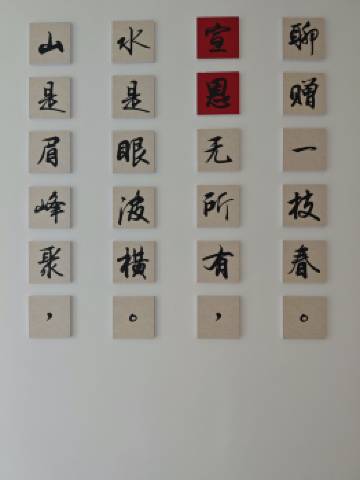 山是眉峰聚，
水是眼波横。
宣恩无所有，
聊赠一枝春。